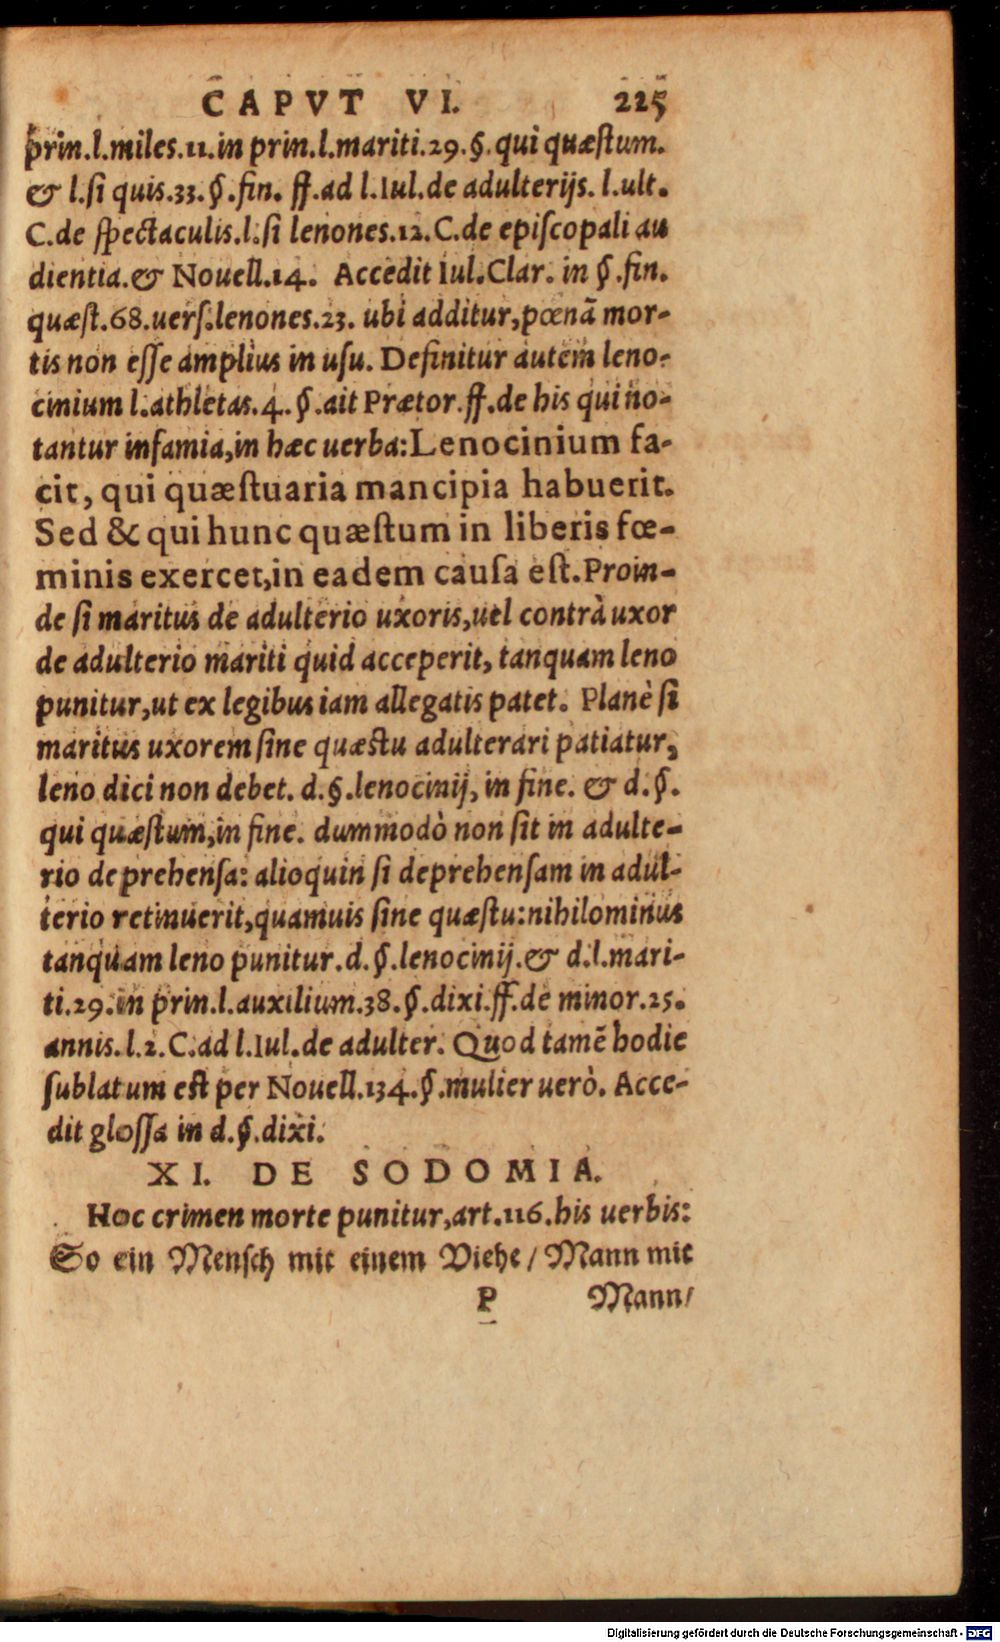 CAPVT VI. 225
prin.l.miles.11.in prin.l.mariti.29.§.qui quæſtum.
& l.ſi quis.33.§.fin. ff.ad l.Iul.de adulterijs. l.ult.
C.de ſpectaculis.l.ſi lenones.12.C.de epiſcopali au
dientia.& Nouell.14. Accedit Iul.Clar. in §.fin.
quæſt.68.uerſ.lenones.23. ubi additur,pœnã mor-
tis non eſſe amplius in uſu. Definitur autem leno-
cinium l.athletas.4.§.ait Prætor.ff.de his qui no-
tantur infamia,in hæc uerba:Lenocinium fa-
cit, qui quæſtuaria mancipia habuerit.
Sed & qui hunc quæſtum in liberis fœ-
minis exercet,in eadem cauſa eſt.Proin-
de ſi maritus de adulterio uxoris,uel contrà uxor
de adulterio mariti quid acceperit, tanquam leno
punitur,ut ex legibus iam allegatis patet. Planè ſi
maritus uxorem ſine quæſtu adulterari patiatur,
leno dici non debet. d.§.lenocinij, in fine. & d.§.
qui quæſtum,in fine. dummodò non ſit in adulte-
rio deprehenſa: alioquin ſi deprehenſam in adul-
terio retinuerit,quamuis ſine quæſtu:nihilominus
tanquam leno punitur.d.§.lenocinij.& d.l.mari-
ti.29.in prin.l.auxilium.38.§.dixi.ff.de minor.25.
annis.l.2.C.ad l.Iul.de adulter. Quod tamẽ hodie
ſublatum eſt per Nouell.134.§.mulier uerò. Acce-
dit gloſſa in d.§.dixi.
XI. DE SODOMIA.
Hoc crimen morte punitur,art.116.his uerbis:
So ein Menſch mit einem Viehe/ Mann mit
P Mann/
Digitalisierung gefördert durch die Deutsche Forschungsgemeinschaft - DFG